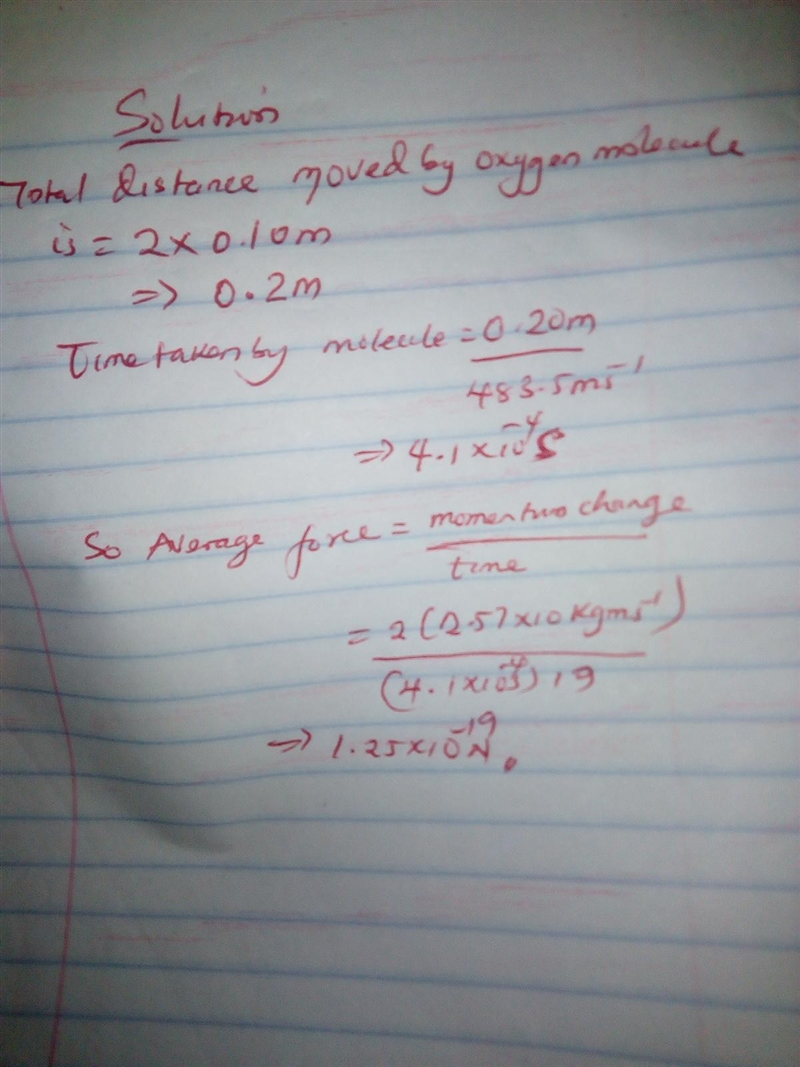 Solution
Total distance moved by oxygen molecule
is = 2 × 0.10m
=> 0.2m
Time taken by molecule = 0.20m
483.5ms⁻¹
=> 4.1 × 10⁻⁴ s
So Average force = momentum change
time
= 2 (2.57 × 10 kgms⁻¹)
(4.1 × 10⁻⁴s) 19
=> 1.25 × 10⁻¹⁹ N.